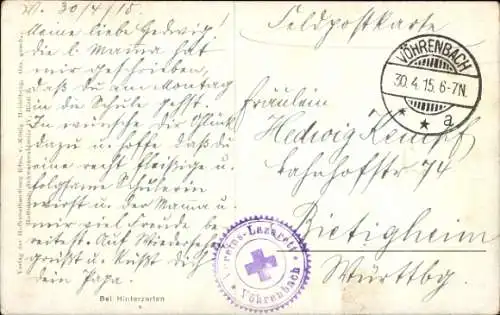 V. 30/4/15.
Meine liebe Hedwig!
die l. Mama hat
mir geschrieben,
daß du am Montag
in die Schule gehst.
Ich wünsche dir Glück
dazu u. hoffe daß du
eine recht fleißige u.
folgsame Schülerin
wirst u. der Mama u.
mir viel Freude be-
reitest. Auf Wiedersehen
grüßt u. küßt dich
dein Papa.
Bei Hinterzarten
Feldpostkarte
VÖHRENBACH
30.4.15.6-7N.
* * a
Fräulein
Hedwig Kempf
Bahnhofstr 74
Bietigheim
Württbg.
Vereins-Lazarett
Vöhrenbach